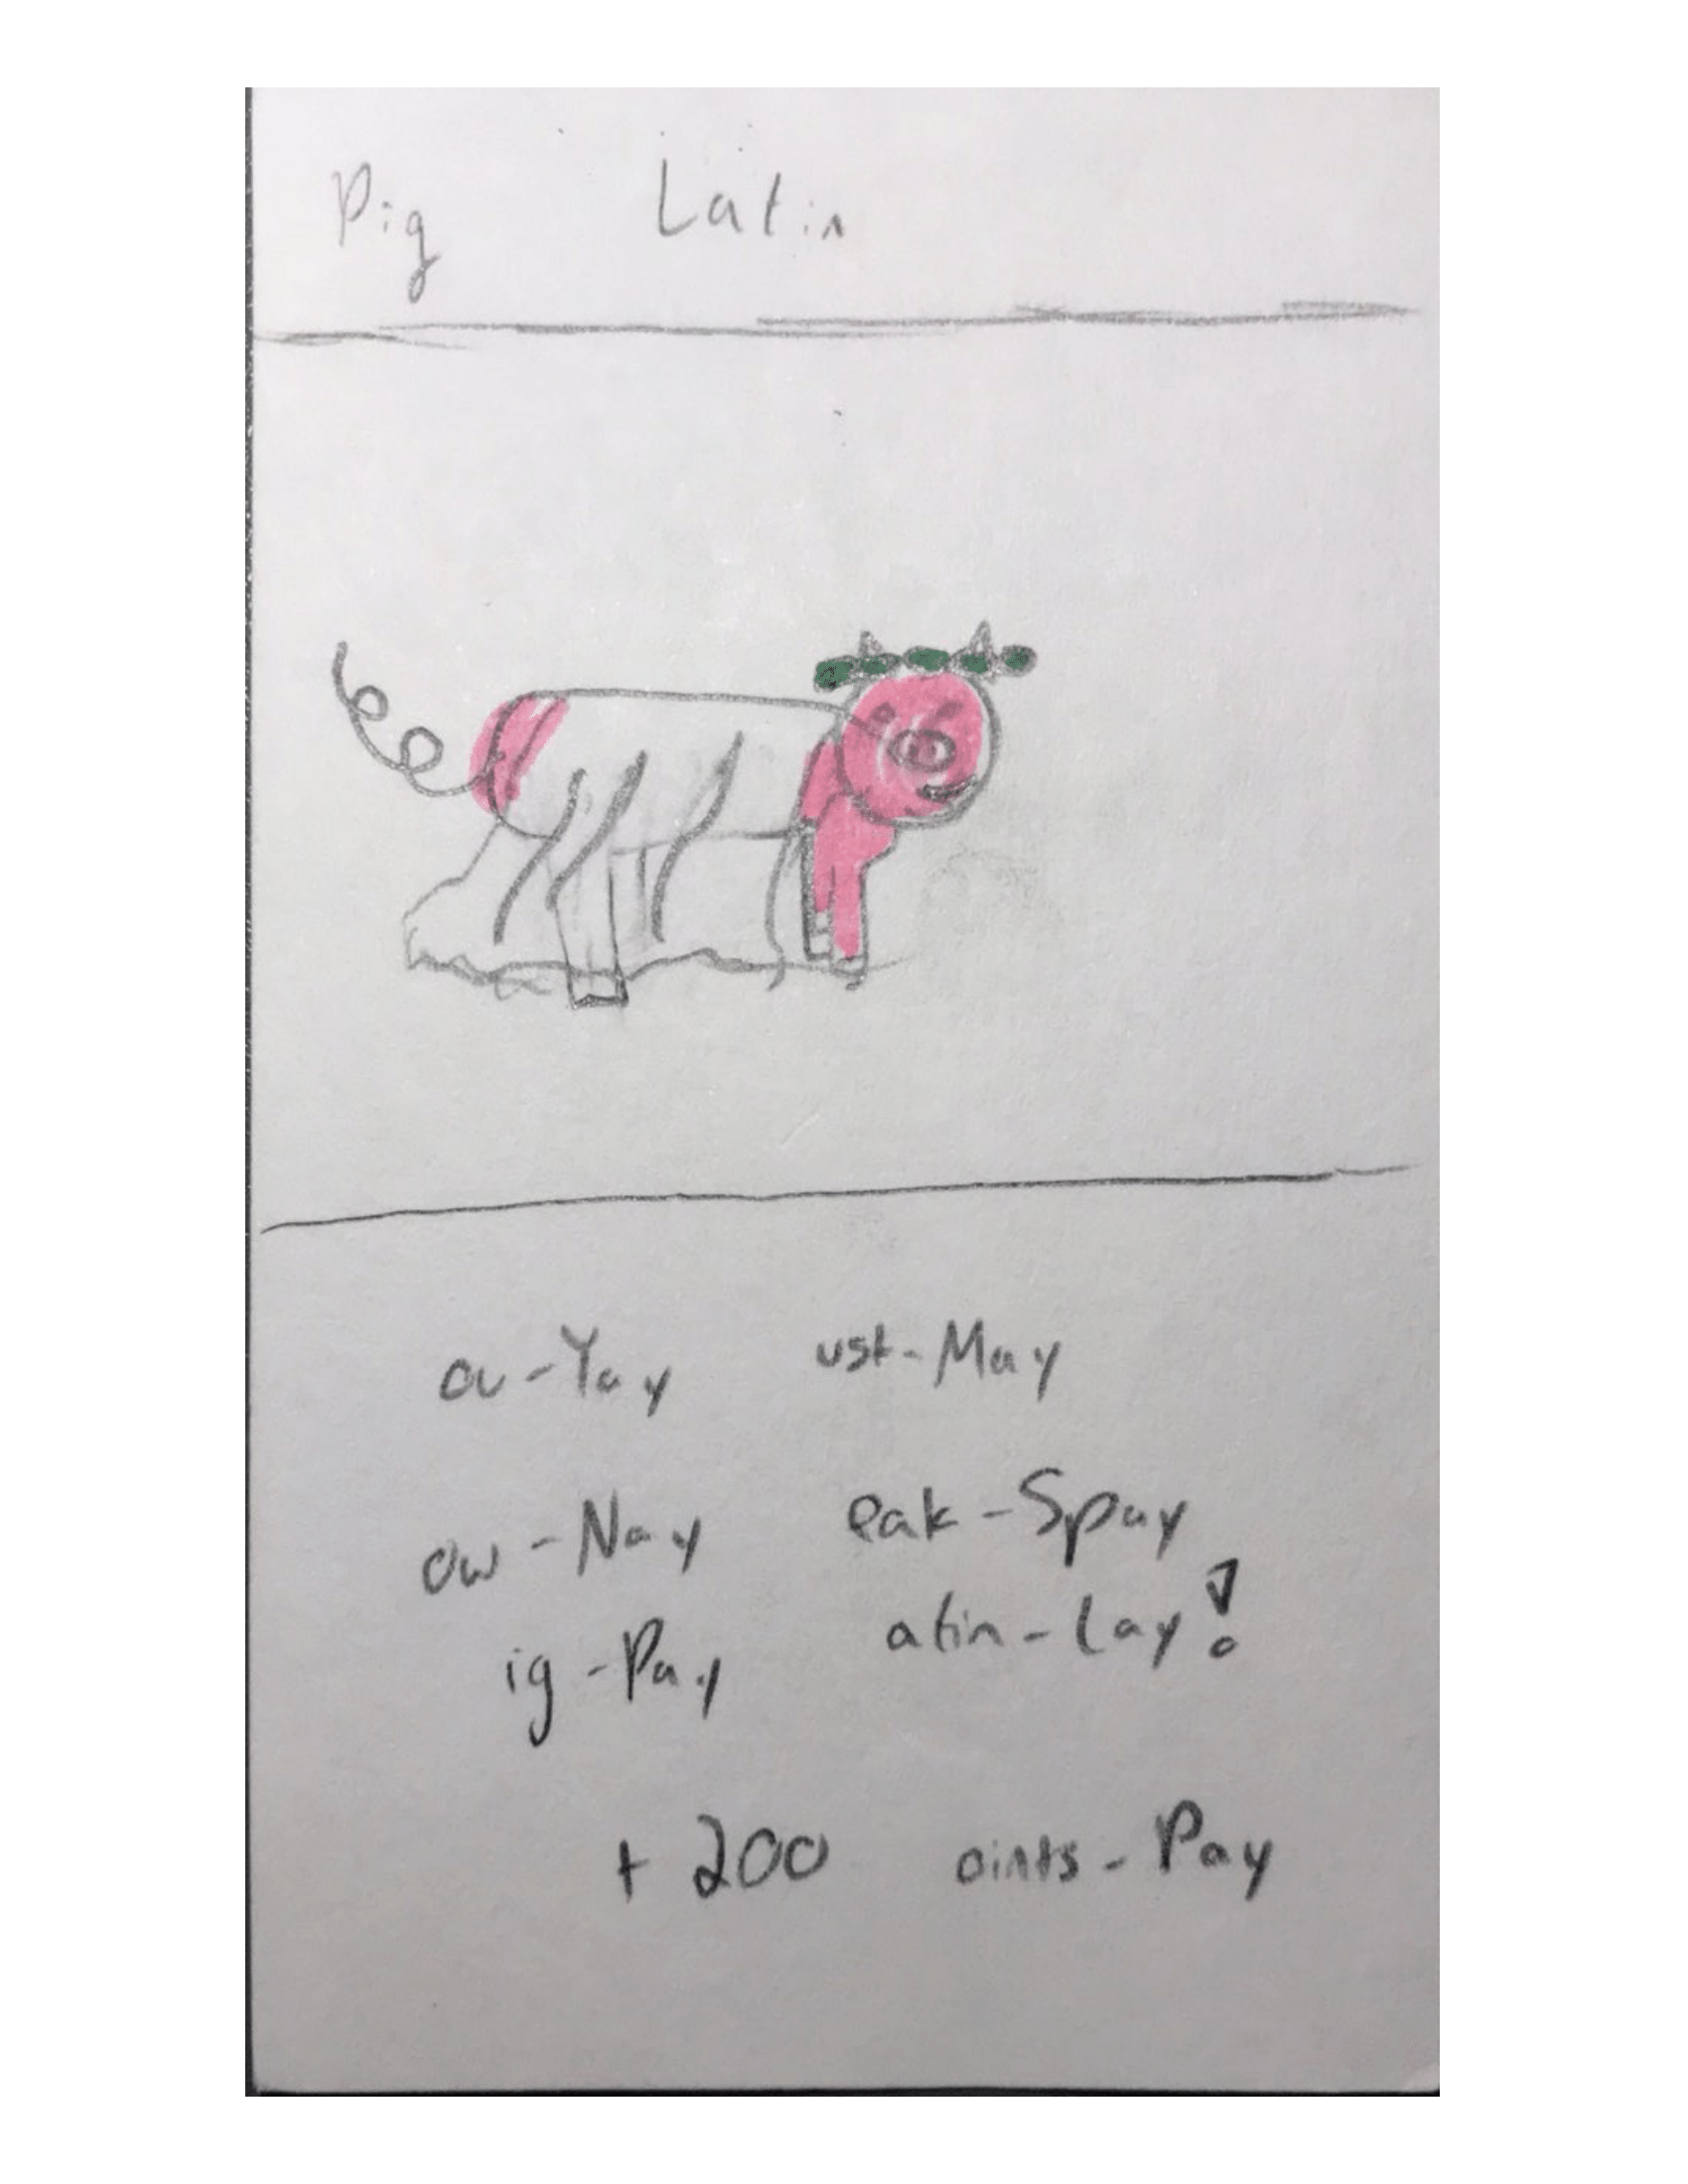 Pig Latin
ou-Yay ust-May
ow-Nay eak-Spay
ig-Pay atin-Lay!
+ 200 oints-Pay